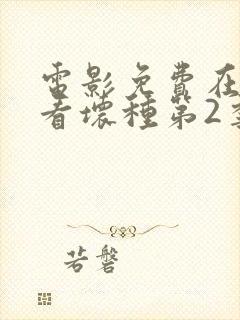 電影免費在
看壞種第2季
若磐